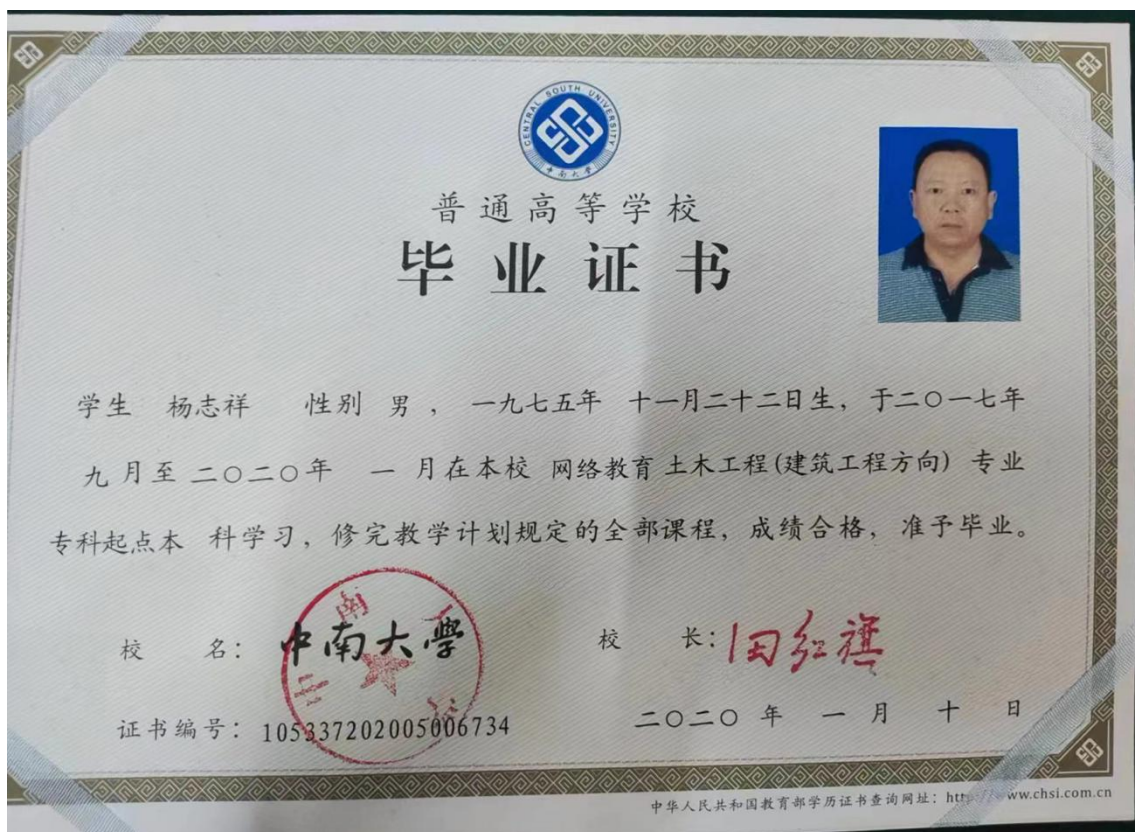 CENTRAL SOUTH UNIVERSITY
中南大学
普通高等学校
毕业证书
学生 杨志祥 性别 男 ， 一九七五年 十一月二十二日生，于二〇一七年
九 月至 二〇二〇年 一 月在本校 网络教育 土木工程(建筑工程方向) 专业
专科起点本 科学习，修完教学计划规定的全部课程，成绩合格，准予毕业。
校 名：中南大學
校 长：田红旗
证书编号：105337202005006734
二〇二〇 年 一 月 十 日
中华人民共和国教育部学历证书查询网址：http://www.chsi.com.cn